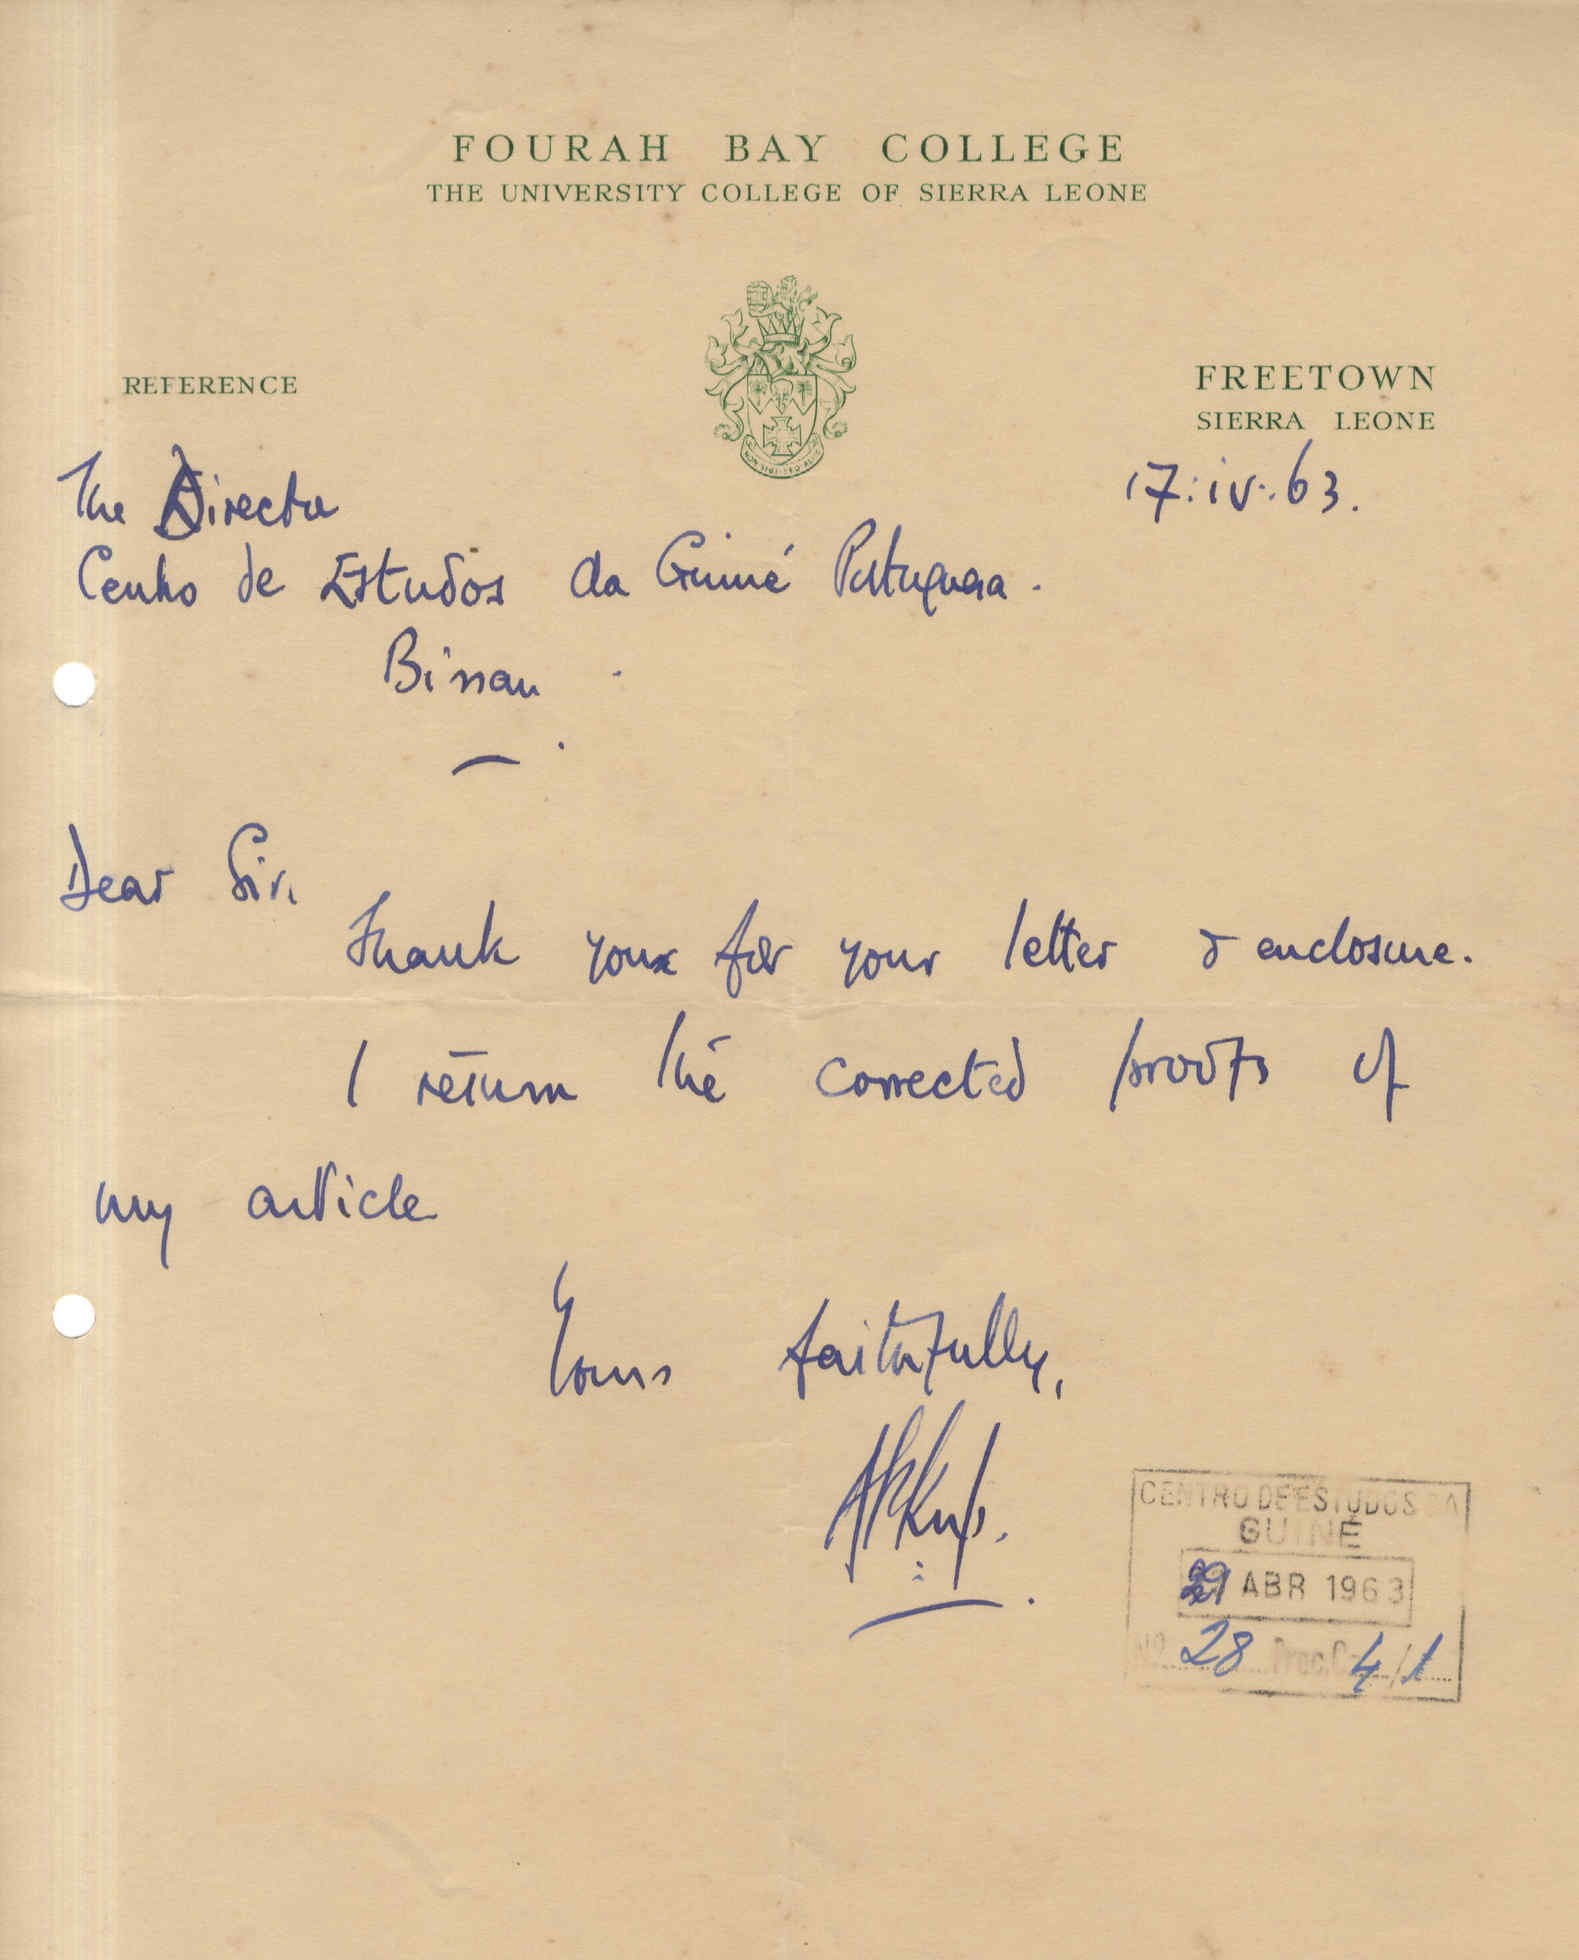 FOURAH BAY COLLEGE
THE UNIVERSITY COLLEGE OF SIERRA LEONE
REFERENCE
FREETOWN
SIERRA LEONE
17:iv:63.
The Director
Centro de Estudos da Guiné Portuguesa.
Bissau
Dear Sir,
Thank you for your letter & enclosure.
I return the corrected proofs of
my article
Yours faithfully,
APKup.
CENTRO DE ESTUDOS DA
GUINÉ
29 ABR 1963
Nº 28 Proc. C 4/1